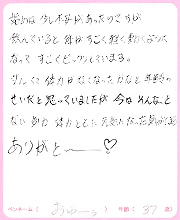 始めは少し不安があったのですが
飲んでいると体がすごく軽く動くようになって
すごくビックリしています。
体力がなくなったかなと年齢の
せいだと思っていましたが今はそんなこと
ない
体力とともに元気になった気がします
ありがとーーー♡
ペンネーム(おゆーぅ) 年齢(37歳)